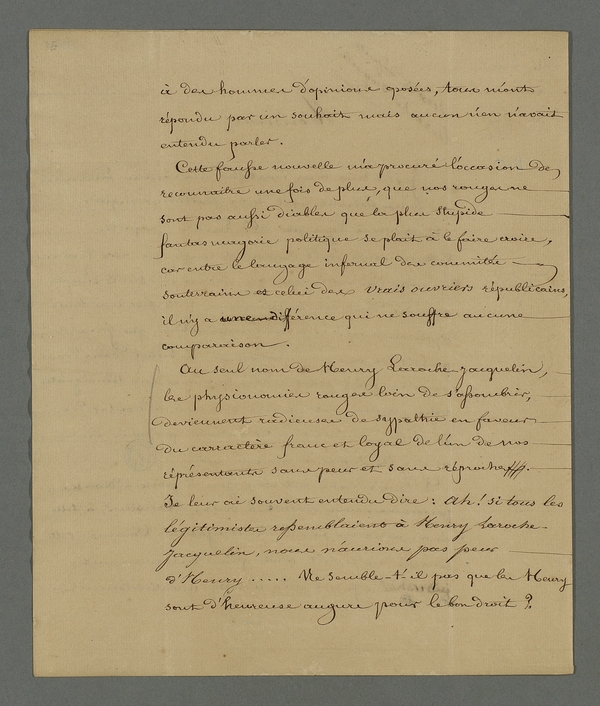 à des hommes d'opinions oposées, tous m'ont
répondu par un souhait mais aucun n'en n'avait
entendu parler.
Cette fausse nouvelle m'a procuré l'occasion de
reconnaitre une fois de plus, que nos rouges ne
sont pas aussi diables que la plus stupide
fantasmagorie politique se plait à le faire croire,
car entre le langage infernal des comités
souterrains et celui des vrais ouvriers républicains,
il n'y a une différence qui ne souffre aucune
comparaison.
Au seul nom de Henry Laroche-Jacquelin,
les physionomies rouges loin de s'assombrir,
deviennent radieuses de sypathie en faveur
du carractère franc et loyal de l'un de nos
réprésentants sans peur et sans réproche.
Je leur ai souvent entendu dire : Ah ! si tous les
légitimistes ressemblaient à Henry Laroche-
Jacquelin, nous n'aurions pas peur
d'Henry ..... Ne semble-t-il pas que les Henry
sont d'heureuse augure pour le bon droit ?